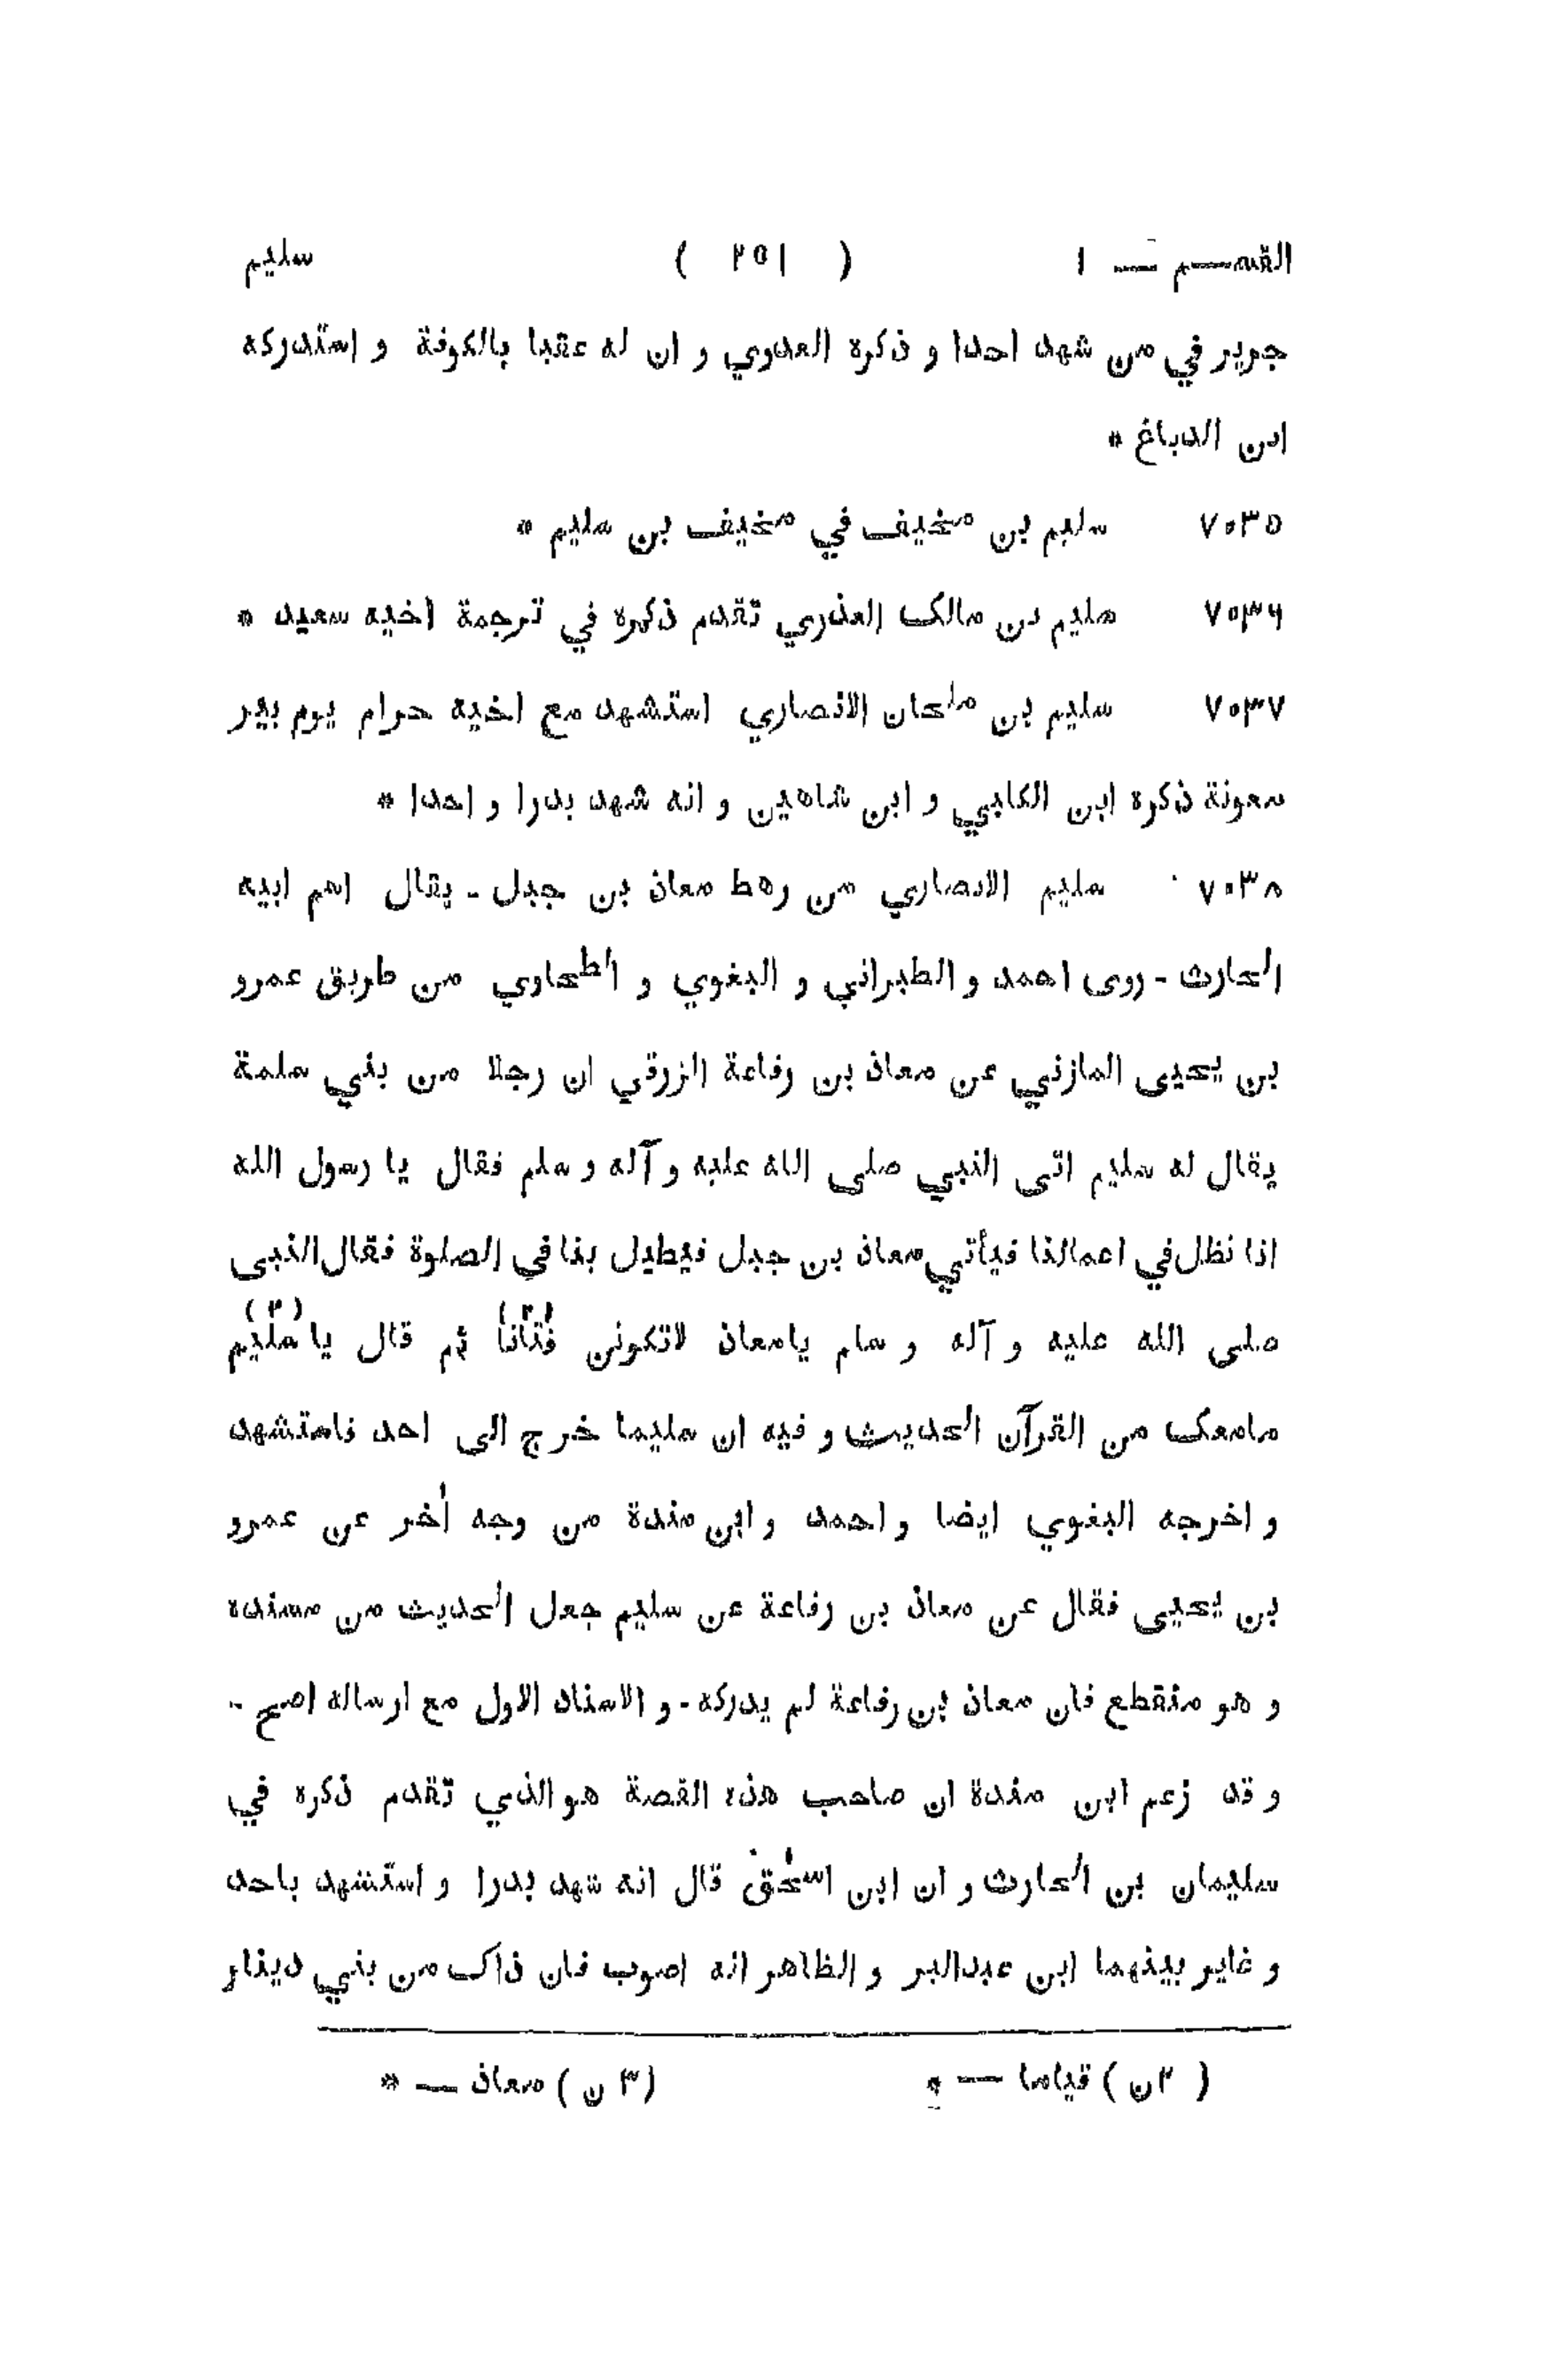 القســم ــ ١ ( ٢٥١ ) سليم
جرير في من شهد احدا و ذكره العدوي و ان له عقبا بالكوفة و استدركه
ابن الدباغ *
٧٠٣٥ سليم بن مخيف في مخيف بن سليم *
٧٠٣٦ سليم بن مالك العذري تقدم ذكره في ترجمة اخيه سعيد *
٧٠٣٧ سليم بن ملحان الانصاري استشهد مع اخيه حرام يوم بير
معونة ذكره ابن الكلبي و ابن شاهين و انه شهد بدرا و احدا *
٧٠٣٨ سليم الانصاري من رهط معاذ بن جبل - يقال اسم ابيه
الحارث - روى احمد و الطبراني و البغوي و الطحاوي من طريق عمرو
بن يحيى المازني عن معاذ بن رفاعة الزرقي ان رجلا من بني سلمة
يقال له سليم اتى النبي صلى الله عليه و آله و سلم فقال يا رسول الله
انا نظل في اعمالنا فيأتي معاذ بن جبل فيطيل بنا في الصلوة فقال النبى
صلى الله عليه و آله و سلم يا معاذ لاتكونن فتانا (٢) ثم قال يا سليم (٣)
مامعك من القرآن الحديث و فيه ان سليما خرج الى احد فاستشهد
و اخرجه البغوي ايضا و احمد و ابن مندة من وجه أخر عن عمرو
بن يحيى فقال عن معاذ بن رفاعة عن سليم جعل الحديث من مسنده
و هو منقطع فان معاذ بن رفاعة لم يدركه - و الاسناد الاول مع ارساله اصح -
و قد زعم ابن مندة ان صاحب هذه القصة هو الذي تقدم ذكره في
سليمان بن الحارث و ان ابن اسحٰق قال انه شهد بدرا و استشهد باحد
و غاير بينهما ابن عبدالبر و الظاهر انه اصوب فان ذاك من بني دينار
( ٢ن ) قياما — * (٣ ن ) معاذ — *